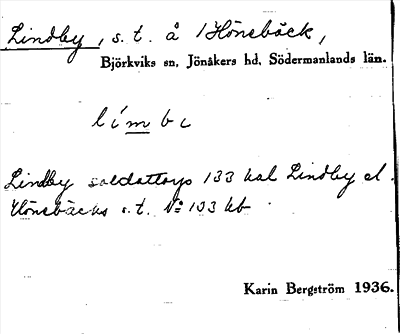 Lindby, s.t. å Hönebäck,
Björkviks sn, Jönåkers hd, Södermanlands län.
límbi
Lindby soldattorp 133 kal Lindby el.
Hönebäcks s.t. № 133 kb
Karin Bergström 1936.